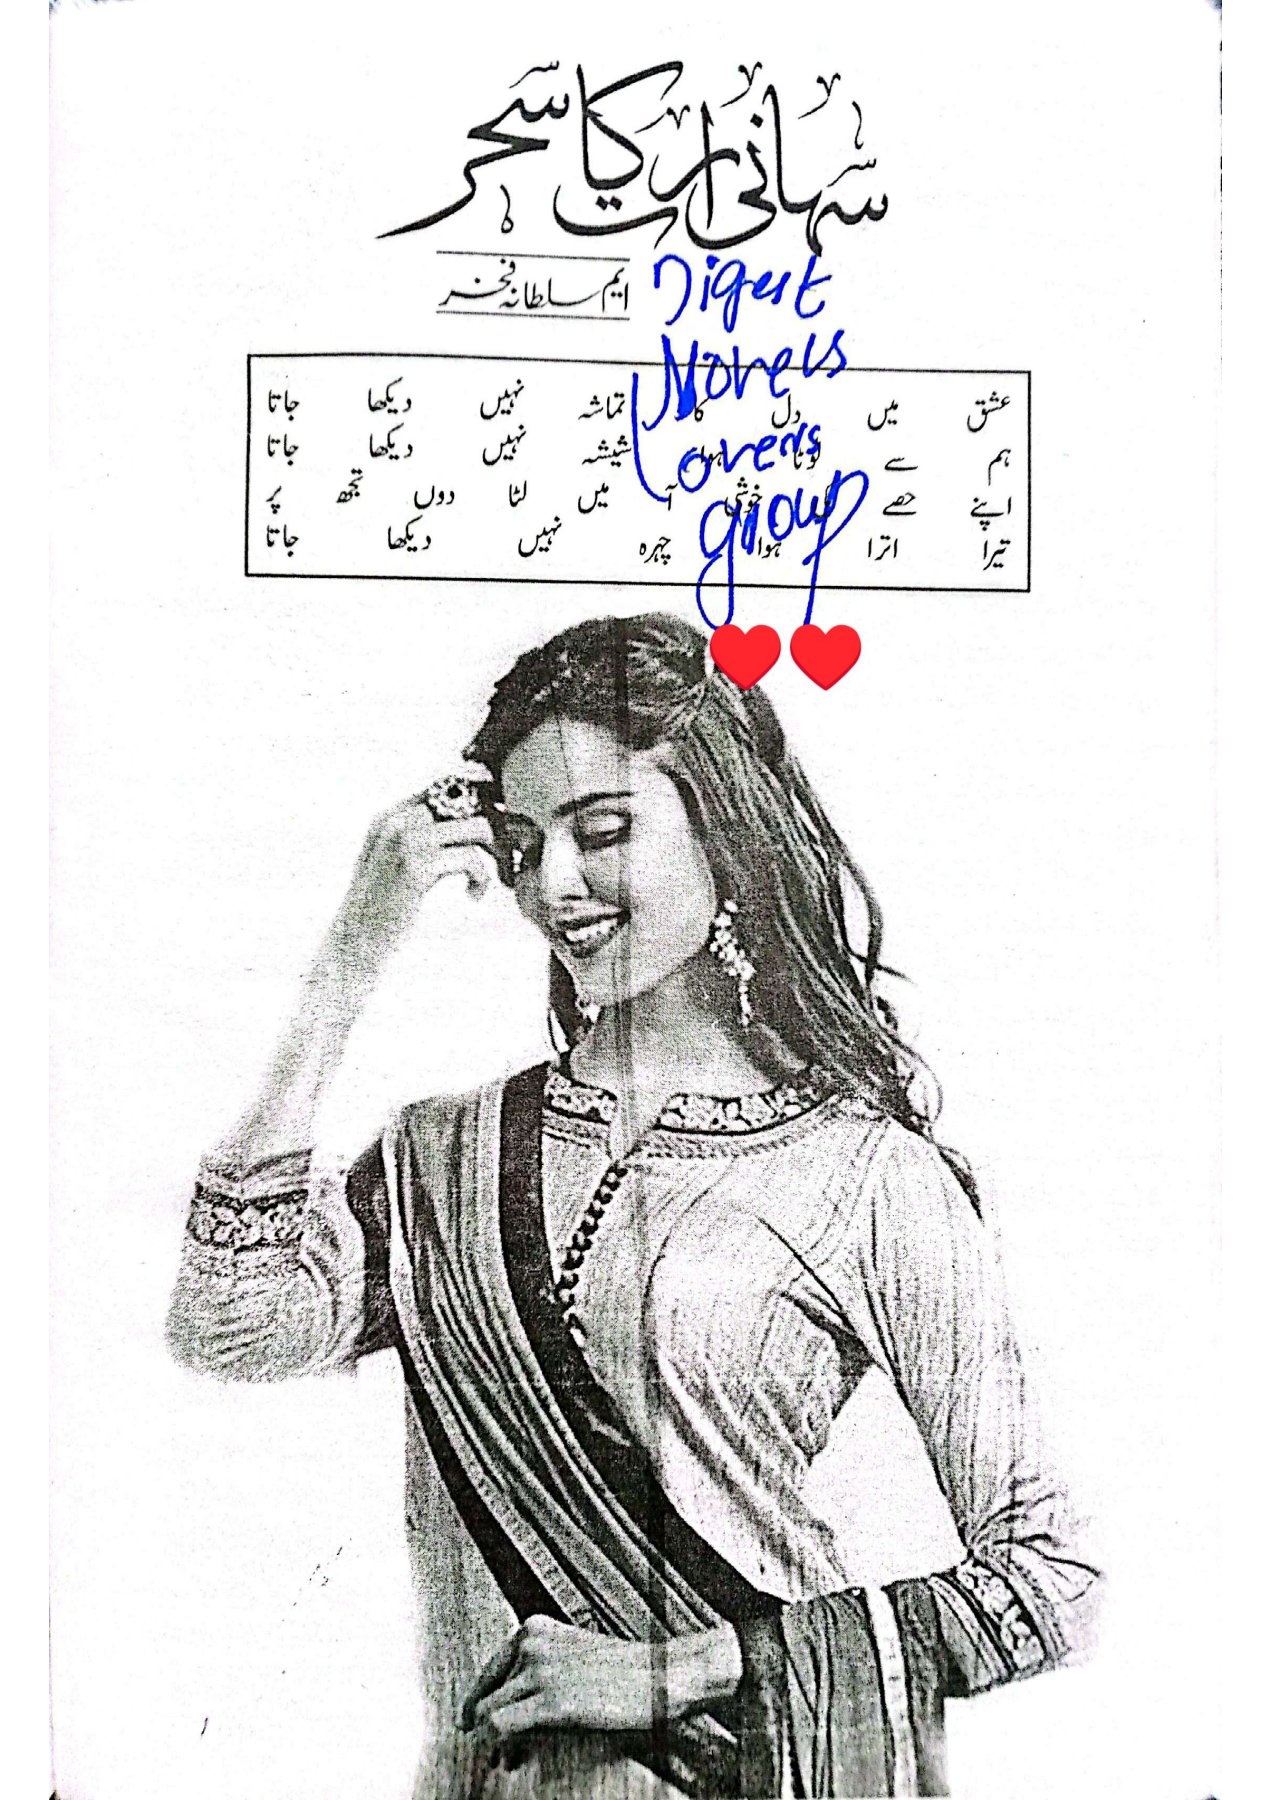 سہانی رات کا سحر
ایم سلطانہ فخر
Digest
Novels
Lovers
group
عشق میں دل کا تماشہ نہیں دیکھا جاتا
ہم سے ٹوٹا ہوا شیشہ نہیں دیکھا جاتا
اپنے حصے کی خوشی آ میں لٹا دوں تجھ پر
تیرا اترا ہوا چہرہ نہیں دیکھا جاتا